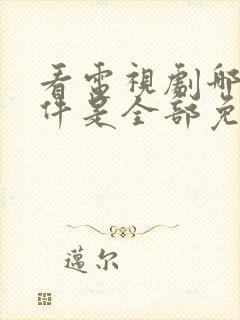 看電視劇哪
件是全部免
邁尔